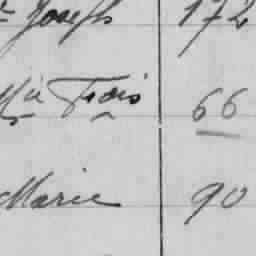 Joseph 172
Mie Frois 66
Marie 90